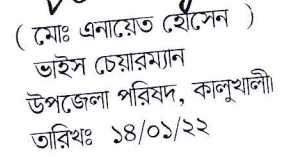 ( মোঃ এনায়েত হোসেন )
ভাইস চেয়ারম্যান
উপজেলা পরিষদ, কালুখালী।
তারিখঃ ১৪/০১/২২